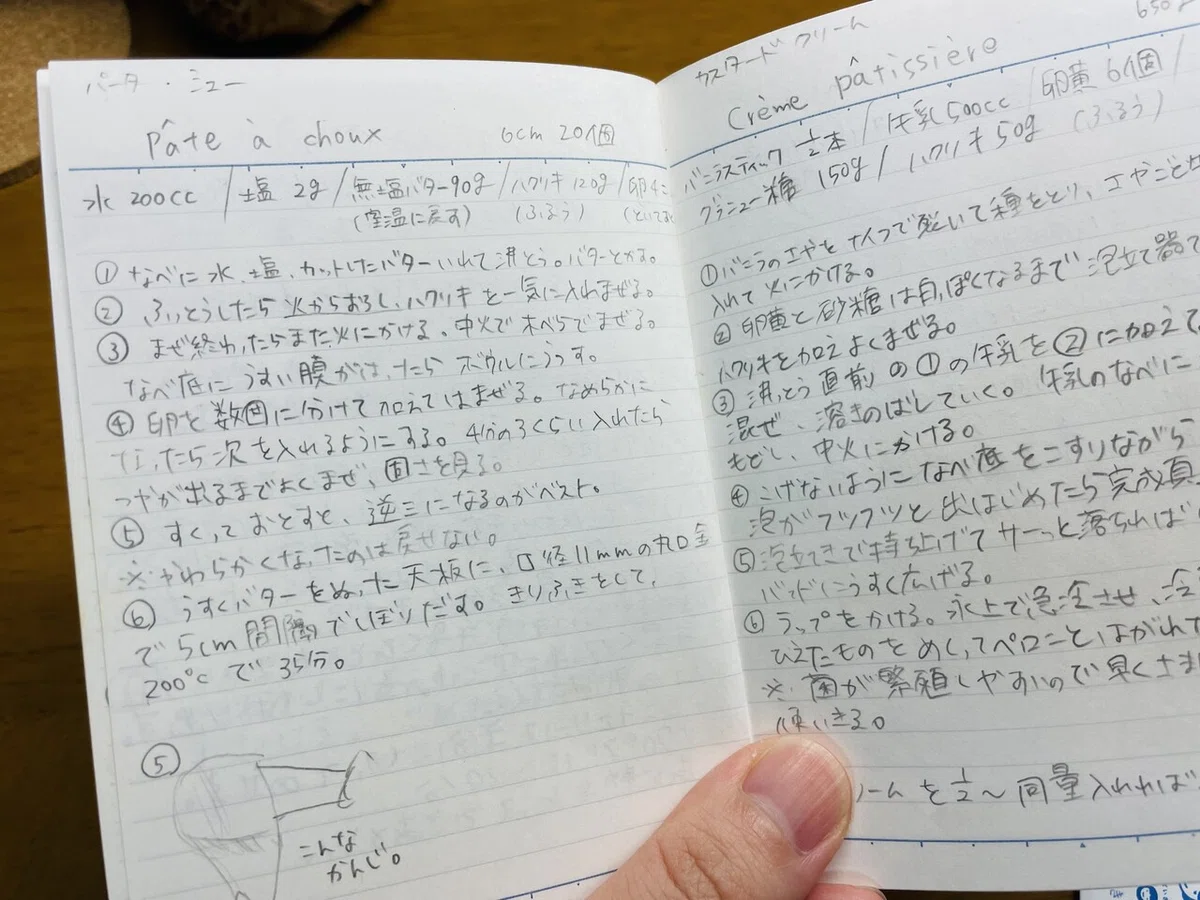 パータ・シュー
Pâte à choux 6cm 20個
水 200cc / 塩 2g / 無塩バター90g / ハクリキ 120g / 卵4コ
(室温に戻す) (ふるう)
① なべに水、塩、カットしたバターいれて沸とう。バターとかす。
② ふっとうしたら火からおろし、ハクリキを一気に入れまぜる。
③ まぜ終わったらまた火にかける。中火で木べらでまぜる。
なべ底にうすい膜がはったらボウルにうつす。
④ 卵を数回に分けて加えてはまぜる。なめらかに
なったら次を入れるようにする。4分の3くらい入れたら
つやが出るまでよくまぜ、固さを見る。
⑤ すくっておとすと、逆三になるのがベスト。
※ やわらかくなったのは戻せない。
⑥ うすくバターをぬった天板に、口径11mmの丸口金
で5cm間隔でしぼりだす。きりふきをして、
200℃で35分。
⑤
こんな
かんじ。
カスタードクリーム
Crème pâtissière 650g
バニラスティック 1/2本 / 牛乳500cc / 卵黄6個 /
グラニュー糖 150g / ハクリキ 50g (ふるう)
① バニラのエやをナイフで裂いて種をとり、エやごと
入れて火にかける。
② 卵黄と砂糖は白っぽくなるまで泡立て器で
ハクリキを加えよくまぜる。
③ 沸とう直前の①の牛乳を②に加えて
混ぜ、溶きのばしていく。牛乳のなべに
もどし、中火にかける。
④ こげないようになべ底をこすりながら
泡がフツフツと出はじめたら完成
⑤ 泡立てきで持ち上げてサーっと落ちれば
バットにうすく広げる。
⑥ ラップをかける。氷上で急冷させ、
ひえたものをめくってペロンとはがれて
※ 菌が繁殖しやすいので早く
使いきる。
ームを1/2〜同量入れれば